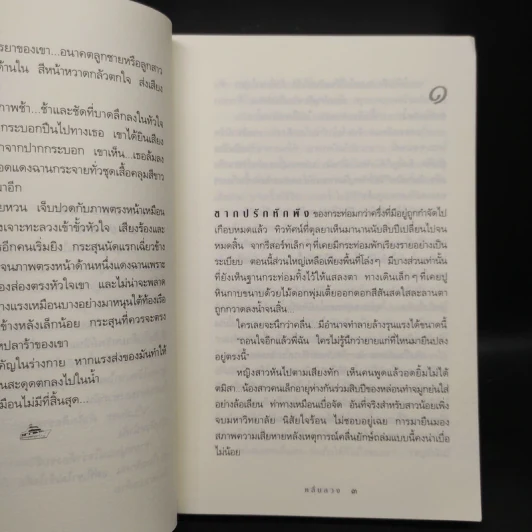 รรยาของเขา...อนาคตลูกชายหรือลูกสาว
ด้านใน สีหน้าหวาดกลัวตกใจ ส่งเสียง
ภาพช้า...ช้าและชัดที่บาดลึกลงในหัวใจ
กระบอกปืนไปทางเธอ เขาได้ยินเสียง
จากปากกระบอก เขาเห็น...เธอล้มลง
อดแดงฉานกระจายทั่วชุดเสื้อคลุมสีขาว
มาอีก
ยหวน เจ็บปวดกับภาพตรงหน้าเหมือน
เจาะทะลวงเข้าขั้วหัวใจ เสียงร้องและ
รอีกคนเริ่มยิง กระสุนนัดแรกเฉี่ยวข้าง
จนภาพตรงหน้าด้านหนึ่งแดงฉานเพราะ
องส่องตรงหัวใจเขา และไม่น่าจะพลาด
างแรงเหมือนบางอย่างมาหนุนใต้ท้องเรือ
ข้างหลังเล็กน้อย กระสุนที่ควรจะตรง
ปลาร้าของเขา
คัญในร่างกาย หากแรงส่งของมันทำให้
นสะดุดตกลงไปในน้ำ
เมือนไม่มีที่สิ้นสุด...
๑
ซากปรักหักพัง ของกระท่อมกว่าครึ่งที่มีอยู่ถูกกำจัดไป
เกือบหมดแล้ว ทิวทัศน์ที่ตุลยาเห็นมานานนับสิบปีเปลี่ยนไปจน
หมดสิ้น จากรีสอร์ทเล็กๆ ที่เคยมีกระท่อมพักเรียงรายอย่างเป็น
ระเบียบ ตอนนี้ส่วนใหญ่เหลือเพียงพื้นที่โล่งๆ มีบางส่วนเท่านั้น
ที่ยังเห็นฐานกระท่อมทิ้งไว้ให้แสลงตา ทางเดินเล็กๆ ที่เคยปู
หินกาบขนาบด้วยไม้ดอกพุ่มเตี้ยออกดอกสีสันสดใสละลานตา
ถูกกวาดลงน้ำจนสิ้น
ใครเลยจะนึกว่าคลื่น มีอำนาจทำลายล้างรุนแรงได้ขนาดนี้
"ถอนใจอีกแล้วพี่ฉัน ใครไม่รู้นึกว่ายายแก่ที่ไหนมายืนปลง
อยู่ตรงนี้"
หญิงสาวหันไปตามเสียงทัก เห็นคนพูดแล้วอดยิ้มไม่ได้
ตมิสา น้องสาวคนเล็กอายุห่างกันร่วมสิบปีของหล่อนทำจมูกย่นใส่
อย่างล้อเลียน ท่าทางเหมือนเบื่อจัด อันที่จริงสำหรับสาวน้อยเพิ่ง
จบมหาวิทยาลัย นิสัยใจร้อน ไม่ชอบอยู่เฉย การมายืนมอง
สภาพความเสียหายหลังเหตุการณ์คลื่นยักษ์ถล่มแบบนี้คงน่าเบื่อ
ไม่น้อย
๓